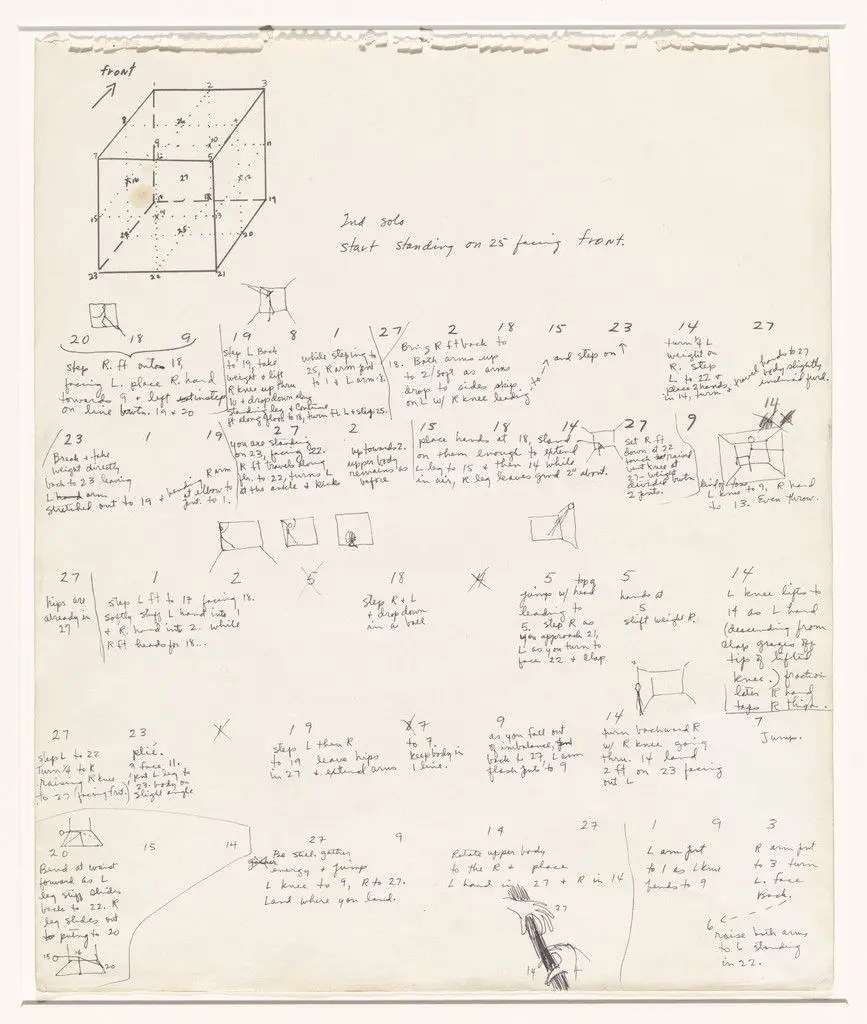 front
2
3
8
26
4
9
10
7
6
5
11
16
27
12
18
19
15
14
13
24
25
20
23
22
21
2nd solo
start standing on 25 facing front.
20 18 9
step R. ft onto 18,
facing L. place R. hand
towards 9 + left
on line btwn. 19 + 20
19 8 1
step L Back
to 19, take
weight + lift
R knee up thru
10 + drop down along
standing leg + continue
ft along floor to 18, turn ft. L + step 25.
while stepping to
25, R arm
to 1 + L arm
27 2 18 15 23
Bring R ft back to
18. Both arms up
to 2/ as arms
drop to sides step
on L w/ R knee leading to
and step on
14 27
turn 1/4 L
weight on
R. step
L to 22 +
place 2 hands
in 14, turn +
travel hands to 27
body slightly
inclined fwd.
23 1 19
Break + take
weight directly
back to 23 leaving
L arm
stretched out to 19 + bending R arm
at elbow to
pnt. to 1.
27 2
you are standing
on 23, facing 22.
R ft travels along
flr. to 22, turns L
at the ankle + kicks
up towards 2.
upper body
remains as
before
15 18 14
place hands at 18, stand
on them enough to extend
L leg to 15 + then 14 while
in air, R leg leaves grnd 2" about.
27
set R ft
down at 22
touch raised
bent knee at
27 - weight
divided btwn
2 pnts.
9 14
L knee to 9, R hand
to 13. Even throw.
27
hips are
already in
27
1 2 5
step L ft to 17 facing 18.
softly stuff L hand into 1
+ R. hand into 2. while
R ft heads for 18...
18 4
step R + L
+ drop down
in a ball
5 top 9
jump w/ head
leading to
5. step R as
you approach 21,
L as you turn to
face 22 + clap
5
hands at
5
shift weight R.
14
L knee lifts to
14 as L hand
(descending from
clap grazes off
tip of lifted
knee.) fraction
later R hand
taps R thigh.
27
step L to 22
Turn 1/4 to R
raising R knee
to 27 (facing frt.)
23
plié.
face, 11.
put L leg to
23. body on
slight angle
19
step L then R
to 19 leave hips
in 27 + extend arms
7
to 7.
keep body in
1 line.
9
as you fall out
of imbalance,
back to 27, L arm
flash pnts to 9
14
turn backward R
w/ R knee going
thru. 14 land
2 ft on 23 facing
out L
7
Jump.
20 15 14
Bend at waist
forward as L
leg stiff slides
back to 22. R
leg slides out
pnting to 20
15 16 20
27 9
Be still. gather
energy + jump
L knee to 9, R to 27.
Land where you land.
14 27
Rotate upper body
to the R + place
L hand in 27 + R in 14
27
14
1 9
L arm pnt
to 1 as L knee
bends to 9
3
R arm pnt
to 3 turn
L. face
back.
6
raise both arms
to 6 standing
in 22.